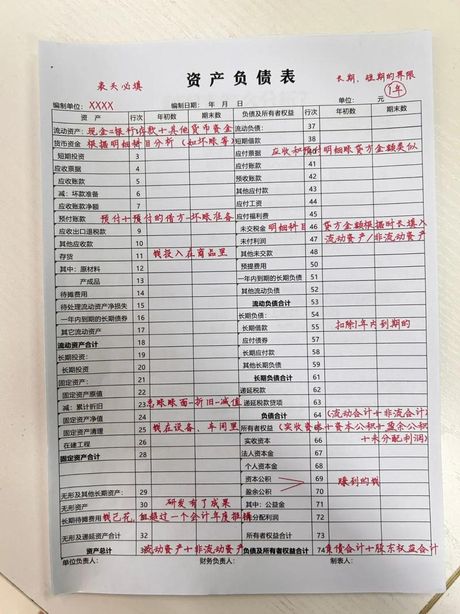 表头必填
资产负债表
长期、短期的界限
1年
编制单位：XXXX 编制日期： 年 月 日 单位： 元
资 产 行次 年初数 期末数 负债及所有者权益 行次 年初数 期末数
流动资产： 现金=银行存款+其他货币资金 流动负债： 37
货币资金 根据明细科目分析(如坏账等) 短期借款 38
短期投资 3 应付票据 应收和预付明细账贷方金额类似
应收票据 4 应付账款 41
应收账款 5 预收账款 42
减：坏账准备 6 其他应付款 43
应收账款净额 7 应付工资 44
预付账款 预付+预付的借方-坏账准备 应付福利费 45
应收出口退税款 9 未交税金 明细科目 46 贷方金额根据时长填入
其他应收款 10 未付利润 47 流动资产/非流动资产
存货 11 钱投入在商品里 其他未交款 48
其中：原材料 12 预提费用 50
产成品 13 一年内到期的长期负债 51
待摊费用 14 其他流动负债 52
待处理流动资产净损失 15 流动负债合计 53
一年内到期的长期债券 16 长期负债： 54
其它流动资产 17 长期借款 55 扣除1年内到期的
流动资产合计 18 应付债券 57
长期投资： 19 长期应付款
长期投资 20 其他长期负债
固定资产： 21 长期负债合计 61
固定资产原值 22 递延税款 62
减：累计折旧 23 总账账面-折旧-减值 递延税款贷项 63
固定资产净值 24 负债合计 64 (流动合计+非流合计)
固定资产清理 25 钱在设备、车间里 所有者权益 (实收资本+资本公积+盈余公积
在建工程 26 实收资本 66 +未分配利润)
固定资产合计 28 法人资本金 67
个人资本金 68
资本公积 69 赚到的钱
无形及其他长期资产： 29 盈余公积 70
无形资产 30 研发有了成果 其中：公益金 71
长期待摊费用 钱已花，但超过一个会计年度摊销 未分配利润 72
无形及递延资产合计 32 所有者权益合计 73
资产总计 流动资产+非流动资产 负债及所有者权益合计 74 负债合计+股东权益合计
单位负责人： 财务负责人： 制表人：